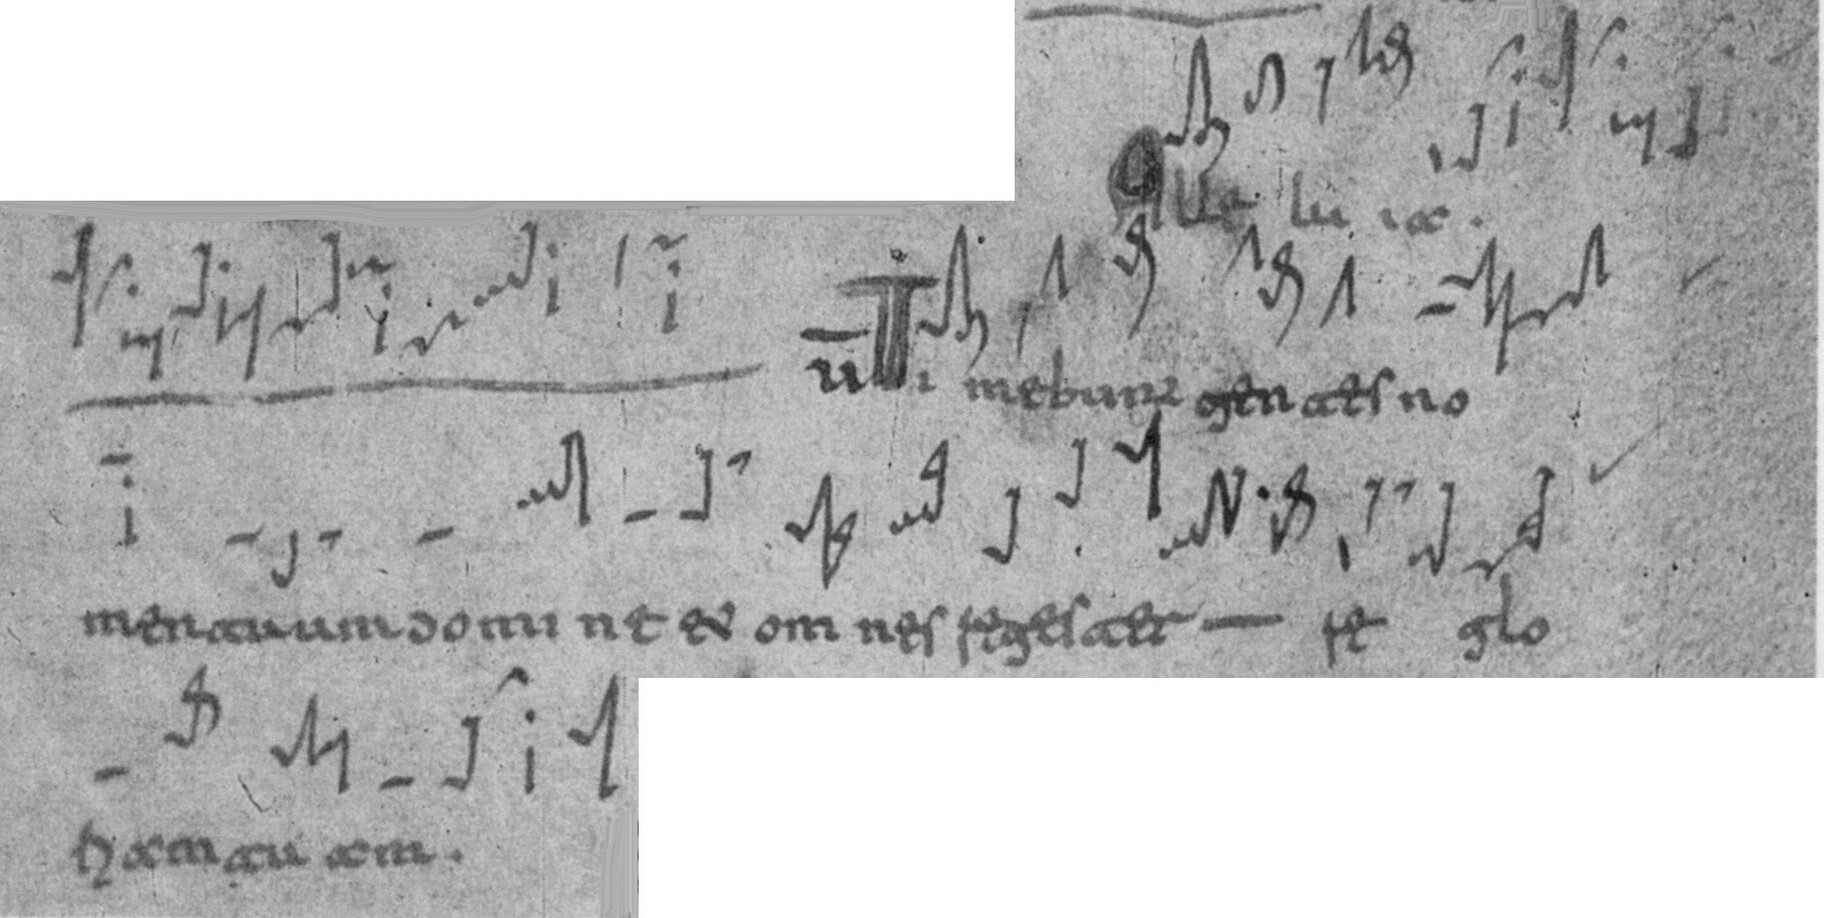 Alle lu ia.
Ti mebunt gentes no
men tuum domi ne et om nes reges ter re glo
riam tu am.